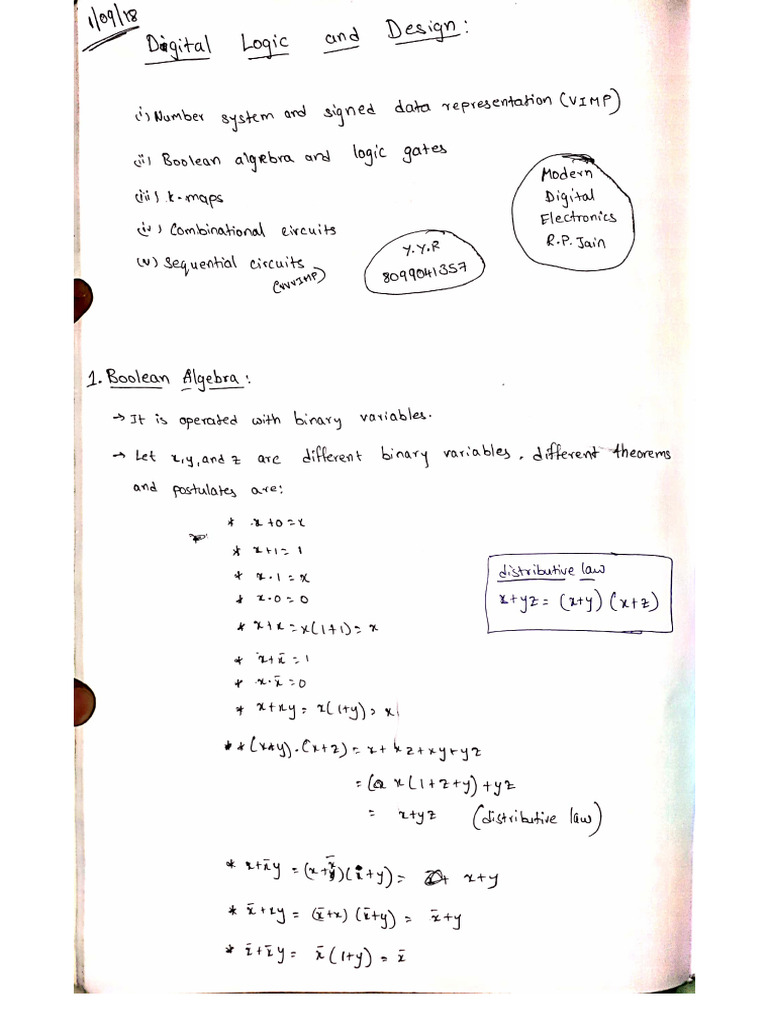 1/09/18
Digital Logic and Design:
(i) Number system and signed data representation (VIMP)
(ii) Boolean algebra and logic gates
(iii) k-maps
(iv) Combinational circuits
(v) Sequential circuits
(VVVIMP)
Y.Y.R
8099041357
Modern
Digital
Electronics
R.P. Jain
1. Boolean Algebra:
→ It is operated with binary variables.
→ Let x, y, and z are different binary variables, different theorems
and postulates are:
* x+0=x
* x+1=1
* x·1=x
* x·0=0
* x+x=x(1+1)=x
* x+x̄=1
* x·x̄=0
* x+xy=x(1+y)=x
distributive law
x+yz=(x+y)(x+z)
** (x+y)·(x+z)=x+xz+xy+yz
= x(1+z+y)+yz
= x+yz (distributive law)
* x+x̄y=(x+x̄)(x+y)= x+y
* x̄+xy=(x̄+x)(x̄+y)= x̄+y
* x̄+x̄y= x̄(1+y)=x̄